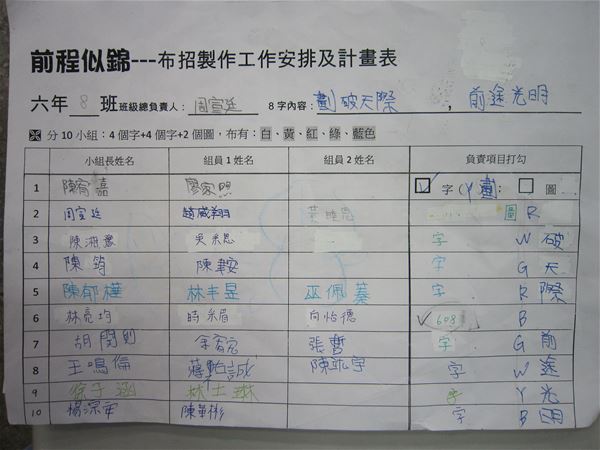 前程似錦---布招製作工作安排及計畫表
六年 8 班班級總負責人： 周宣廷 8字內容： 劃破天際 ， 前途光明
※ 分10小組：4個字+4個字+2個圖，布有：白、黃、紅、綠、藍色
小組長姓名 組員1姓名 組員2姓名 負責項目打勾
1 陳宥嘉 廖家 ✓□字( Y 劃 ； □圖
2 周宣廷 趙威翔 黃 圖 R
3 陳湘 吳禾恩 字 W 破
4 陳筠 陳 字 G 天
5 陳郁樺 林丰昱 巫佩蓁 字 R 際
6 林亮均 時禾眉 向怡德 ✓ 608 B
7 胡閔則 余 張哲 字 G 前
8 王鳴倫 蔣 誠 陳 宇 字 W 途
9 徐子涵 林士琳 字 Y 光
10 楊 陳 彬 字 B 明